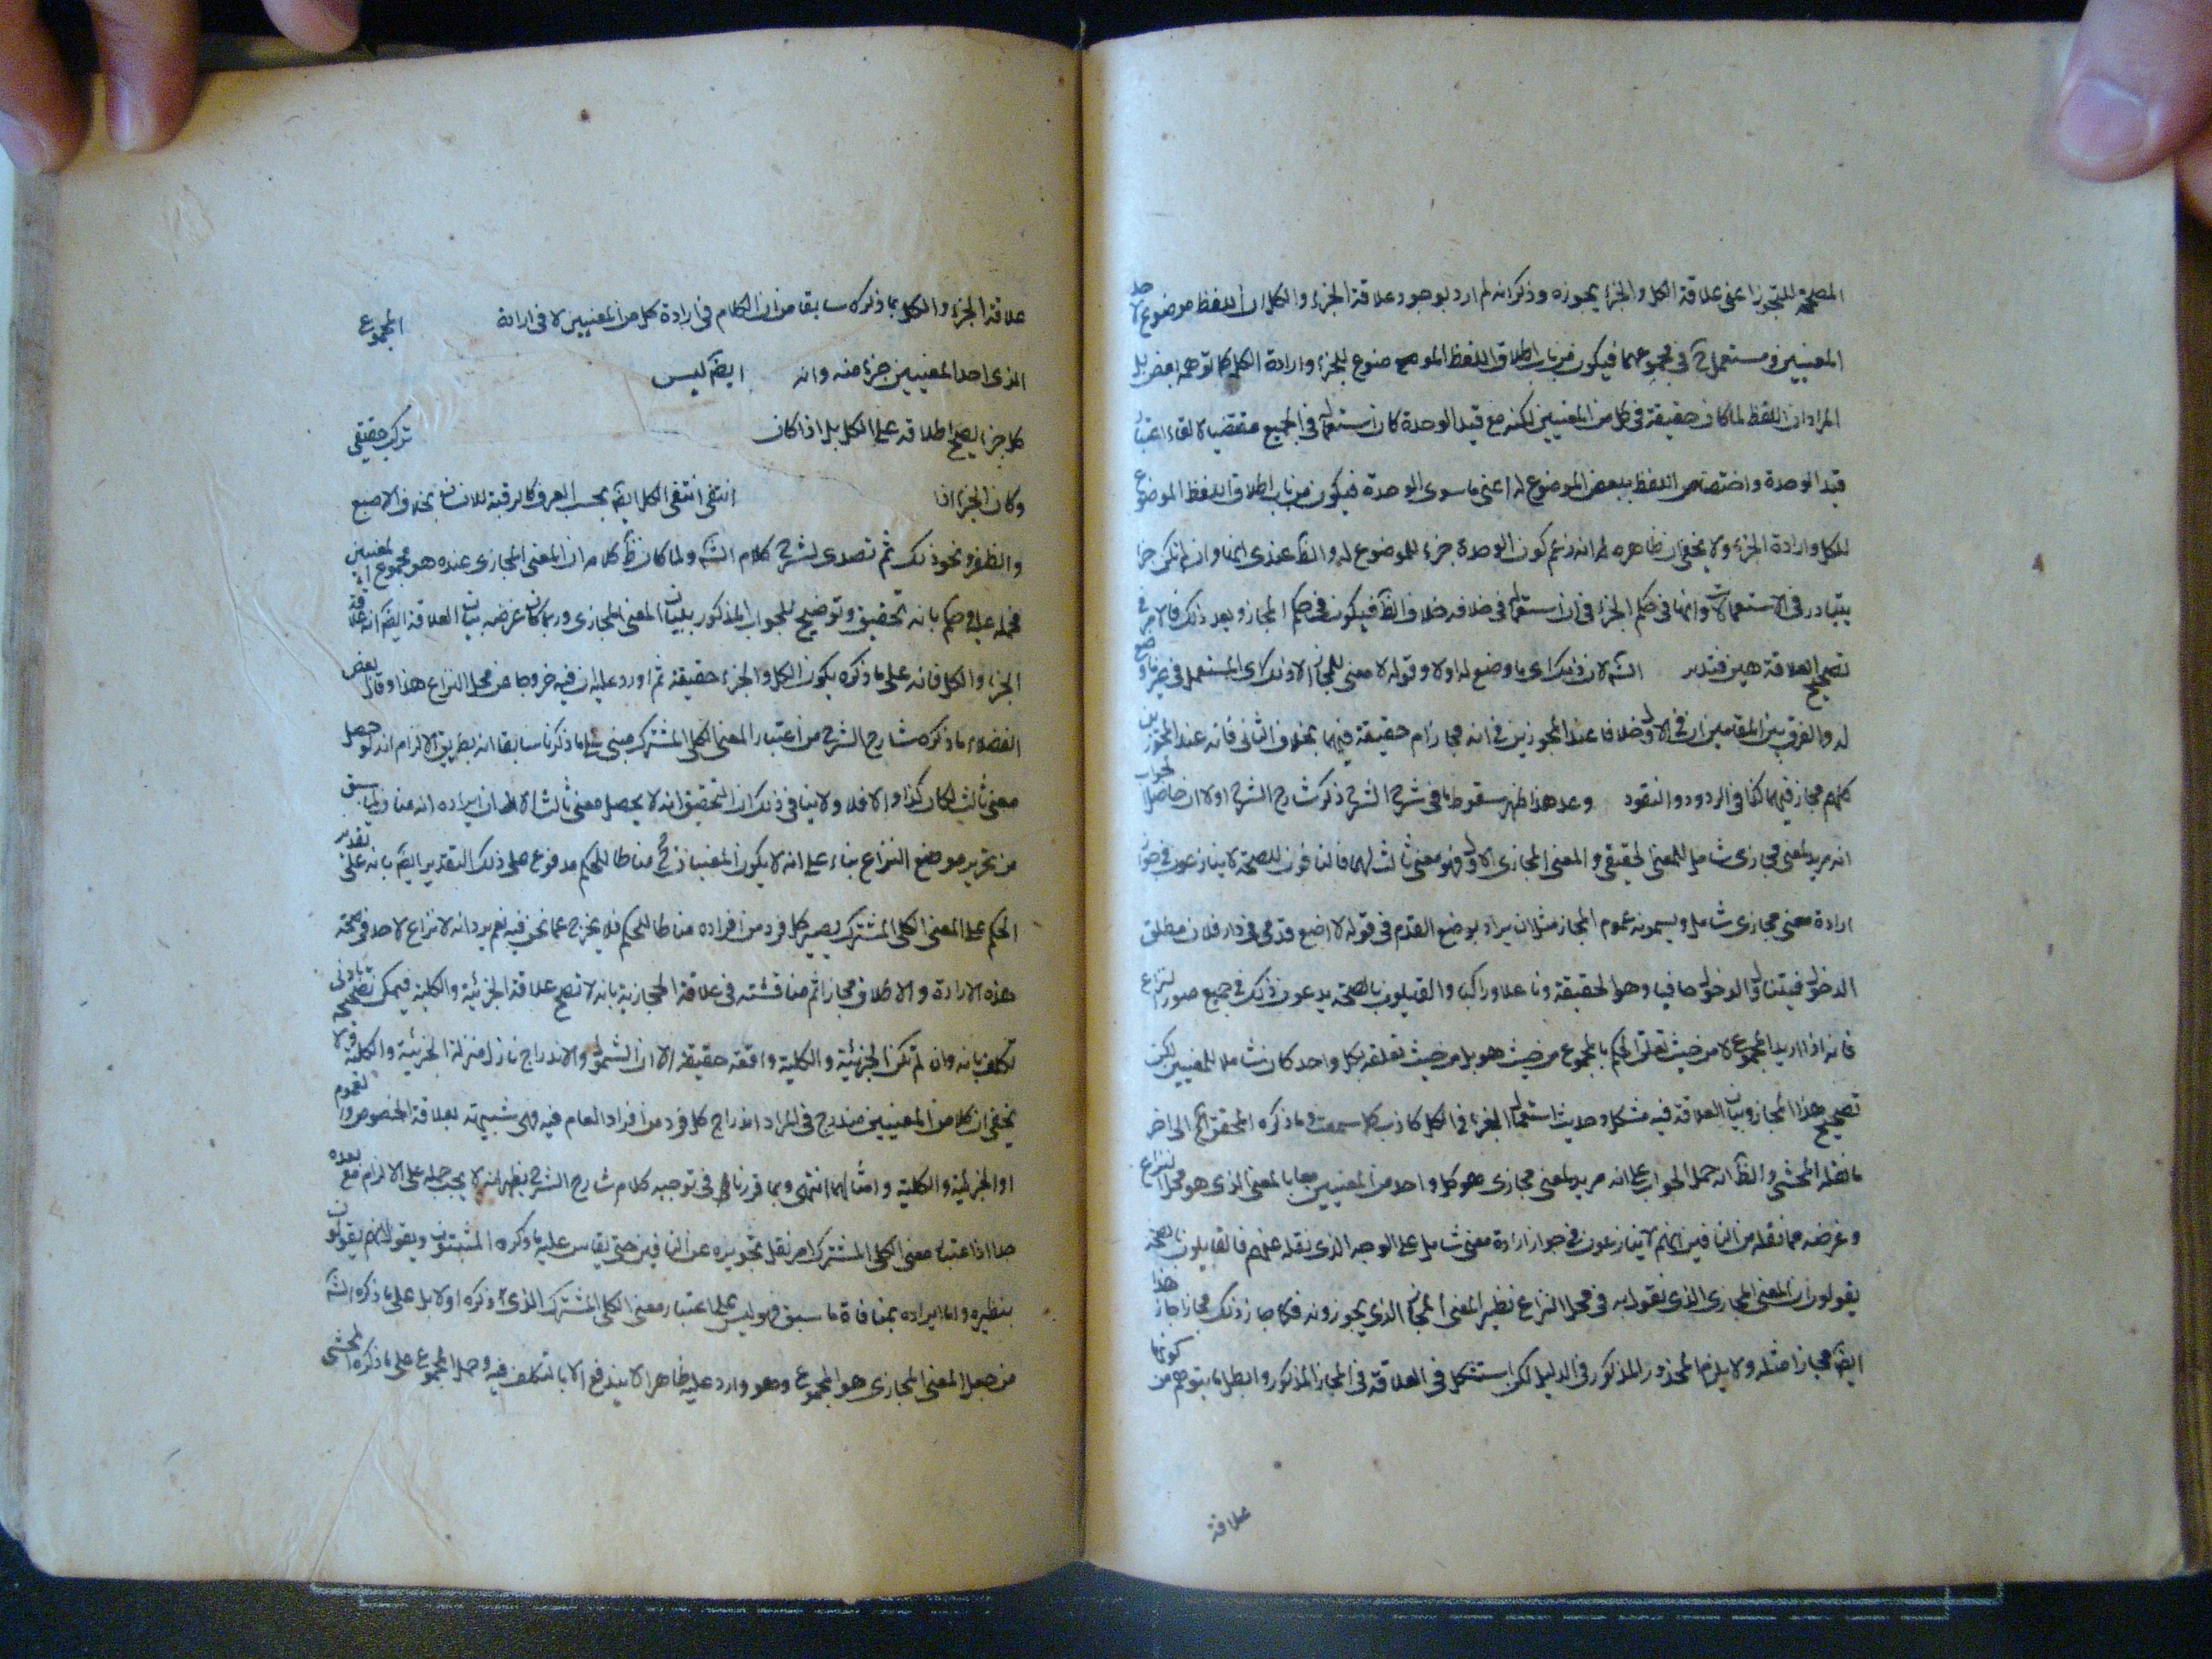 المصححة للتجوز اعنى علاقة الكل والجزء يجوزه وذكر انه لم ارد بوجود علاقة الجزء والكل ان اللفظ موضوع لاحد
المعنيين ومستعمل ح فى مجموعهما فيكون من باب اطلاق اللفظ الموضوع للجزء وارادة الكل كما توهمه بعض بل
المراد ان اللفظ لما كان حقيقة فى كل من المعنيين لكنه مع قيد الوحدة كان استعماله فى الجميع مقتضيا لالغاء اعتبار
قيد الوحدة واختصاص اللفظ ببعض الموضوع له اعنى ما سوى الوحدة فيكون من باب اطلاق اللفظ الموضوع
للكل وارادة الجزء ولا يخفى ان ظاهره انه زعم كون الوحدة جزء للموضوع له والظ عندى انها وان لم تكن جزا
يتبادر فى الاستعمالات وانها فى حكم الجزء فى ان استعماله فى خلافه خلاف الظ فيكون فى حكم المجاز وبعد ذلك فالامر فى
تصحيح العلاقة هين فتدبر الش لان ذلك اى ما وضع له اولا وقوله لا معنى للمجاز الا ذلك اى المستعمل فى غير ما وضع
له والفرق بين المقامين ان فى الاول خلافا عند المجوزين فى انه مجاز ام حقيقة فيهما بخلاف الثانى فانه عند المجوزين
كلهم مجاز فيهما كذا فى الردود والنقود وعد هذا ظهر سقوط ما فى شرح الشرح ذكر شارح الشرح اولا ان حاصل الجواب
انه مريد لمعنى مجازى شامل للمعنى الحقيقى والمعنى المجازى الاول فهو معنى ثالث لهما فالنافون للصحة لا ينازعون فى جواز
ارادة معنى مجازى شامل ويسمونه عموم المجاز مثلا ان يراد بوضع القدم فى قوله لا اضع قدمى فى دار فلان مطلق
الدخول فيتناول الدخول حافيا وهو الحقيقة وناعلا وراكبا والقايلون بالصحة يدعون ذلك فى جميع صور النزاع
فانه اذا اريد المجموع لا من حيث تعلق الحكم بالمجموع من حيث هو بل من حيث تعلقه بكل واحد كان شاملا للمعنيين لكن
تصحيح هذا المجاز وبيان العلاقة فيه مشكل وحديث استعمال الجزء فى الكل كاذب كما سمعت وما ذكره المحقق الى اخر
ما نقله المحشى والظ انه حمل الجواب على انه مريد لمعنى مجازى هو كل واحد من المعنيين معا بالمعنى الذى هو محل النزاع
وغرضه مما نقله من النافين انهم لا ينازعون فى جواز ارادة معنى شامل على الوجه الذى نقله عنهم فالقايلون بالصحة
يقولون ان المعنى المجازى الذى نقول به فى محل النزاع نظير المعنى المجازى الذى يجوزونه فكما جاز ذلك مجازا جاز هذا
ايضا مجازا مثله ولا يلزم المحذور المذكور فى الدليل لكن استشكل فى العلاقة فى المجاز المذكور وابطل ما يتوهم من كونها
علاقة
علاقة الجزء والكل بما ذكره سابقا من ان الكلام فى ارادة كل من المعنيين لا فى ارادة المجموع
الذى احد المعنيين جزء منه وانه ايضا ليس
كل جزء يصح اطلاقه على الكل بل اذا كان تركب حقيقى
وكان الجزء اذا انتفى انتفى الكل ايضا بحسب العرف كالرقبة للانسان بخلاف الاصبع
والظفر ونحو ذلك ثم تصدى لشرح كلام الش ولما كان ظ كلامه ان المعنى المجازى عنده هو مجموع المعنيين
فحمله عليه وحكم بانه تحقيق وتوضيح للجواب المذكور ببيان المعنى المجازى وربما كان غرضه بيان العلاقة ايضا انه علاقة
الجزء والكل فانه على ما ذكره يكون الكل والجزء حقيقة ثم اورد عليه ان فيه خروجا عن محل النزاع هذا وقال بعض
الفضلاء ما ذكره شارح الشرح من اعتبار المعنى الكلى المشترك مبنى على ما ذكرنا سابقا انه بطريق الالزام انه لو حصل
معنى ثالث لكان كذا والا فلا ولا ينافى ذلك ان التحقيق انه لا يحصل معنى ثالث الا ان ايراده انه مناف لما سبق
من تحرير موضع النزاع بناء على انه لا يكون المعنيان ح مناطا للحكم مدفوع على ذلك التقدير ايضا بانه على تقدير
الحكم على المعنى الكلى المشترك يصير كل فرد من افراده مناطا للحكم فلا يخرج عما نحن فيه نعم يرد انه لا نزاع لاحد فى صحة
هذه الارادة والاطلاق مجازا ثم مناقشته فى علاقة المجازية بانه لا تصح علاقة الجزئية والكلية فيمكن تصحيحه بادنى
تكلف بانه وان لم تكن الجزئية والكلية واقعة حقيقة الا ان الشمول والاندراج نازل منزلة الجزئية والكلية ولا
يخفى ان كلا من المعنيين مندرج فى المراد اندراج كل فرد من افراد العام فيه فهى شبيهة بعلاقة الخصوص والعموم
او الجزئية والكلية وامثالهما انتهى وبما قررنا فى توجيه كلام شارح الشرح يظهر انه لا يجب حمله على الالزام مع بعده
جدا اذ اعتبار معنى الكلى المشترك امر نقل تجويزه عن النافين حتى يقاس عليه ما ذكره المثبتون ويقول انهم يقولون
بنظيره واما ايراده بمنافاة ما سبق فهو ليس على اعتبار معنى الكلى المشترك الذى ذكره اولا بل على ما ذكره الش
من جعل المعنى المجازى هو المجموع وهو وارد عليه ظاهرا لا يندفع الا بالتكلف فيه وحمل المجموع على ما ذكره المحشى